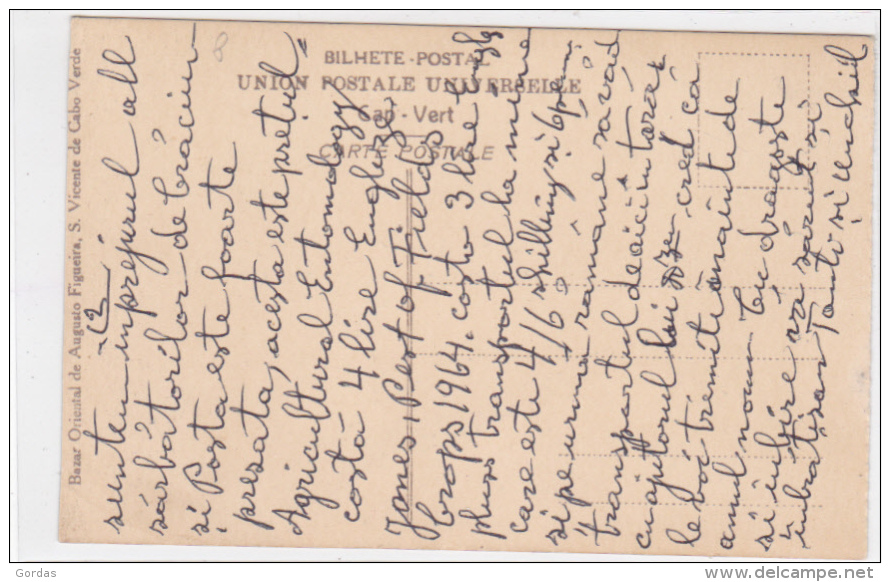 Bazar Oriental de Augusto Figueira, S. Vicente de Cabo Verde
BILHETE-POSTAL
UNION POSTALE UNIVERSELLE
Cap-Vert
CARTE POSTALE
8
-2-
suntem inprejurul all
sărbătorilor de Crăciun
si Posta este foarte
presata, acesta este pretul-
Agricultural Entomology
costă 4 lire Engleze
Jones, Pest of Fields
Crops 1964. costa 3 lire engle
pluss transportul la mine
care este 4/6 shillingi si 6 peni
si pe urmă ramane sa văd
transportul de aici in tara
cu ajutorul lui Dzeu cred ca
le voi tremite inainte de
anul nou. Cu dragoste
si iubire va sărut si
imbratisez Tanti si Unchiul
Gordas